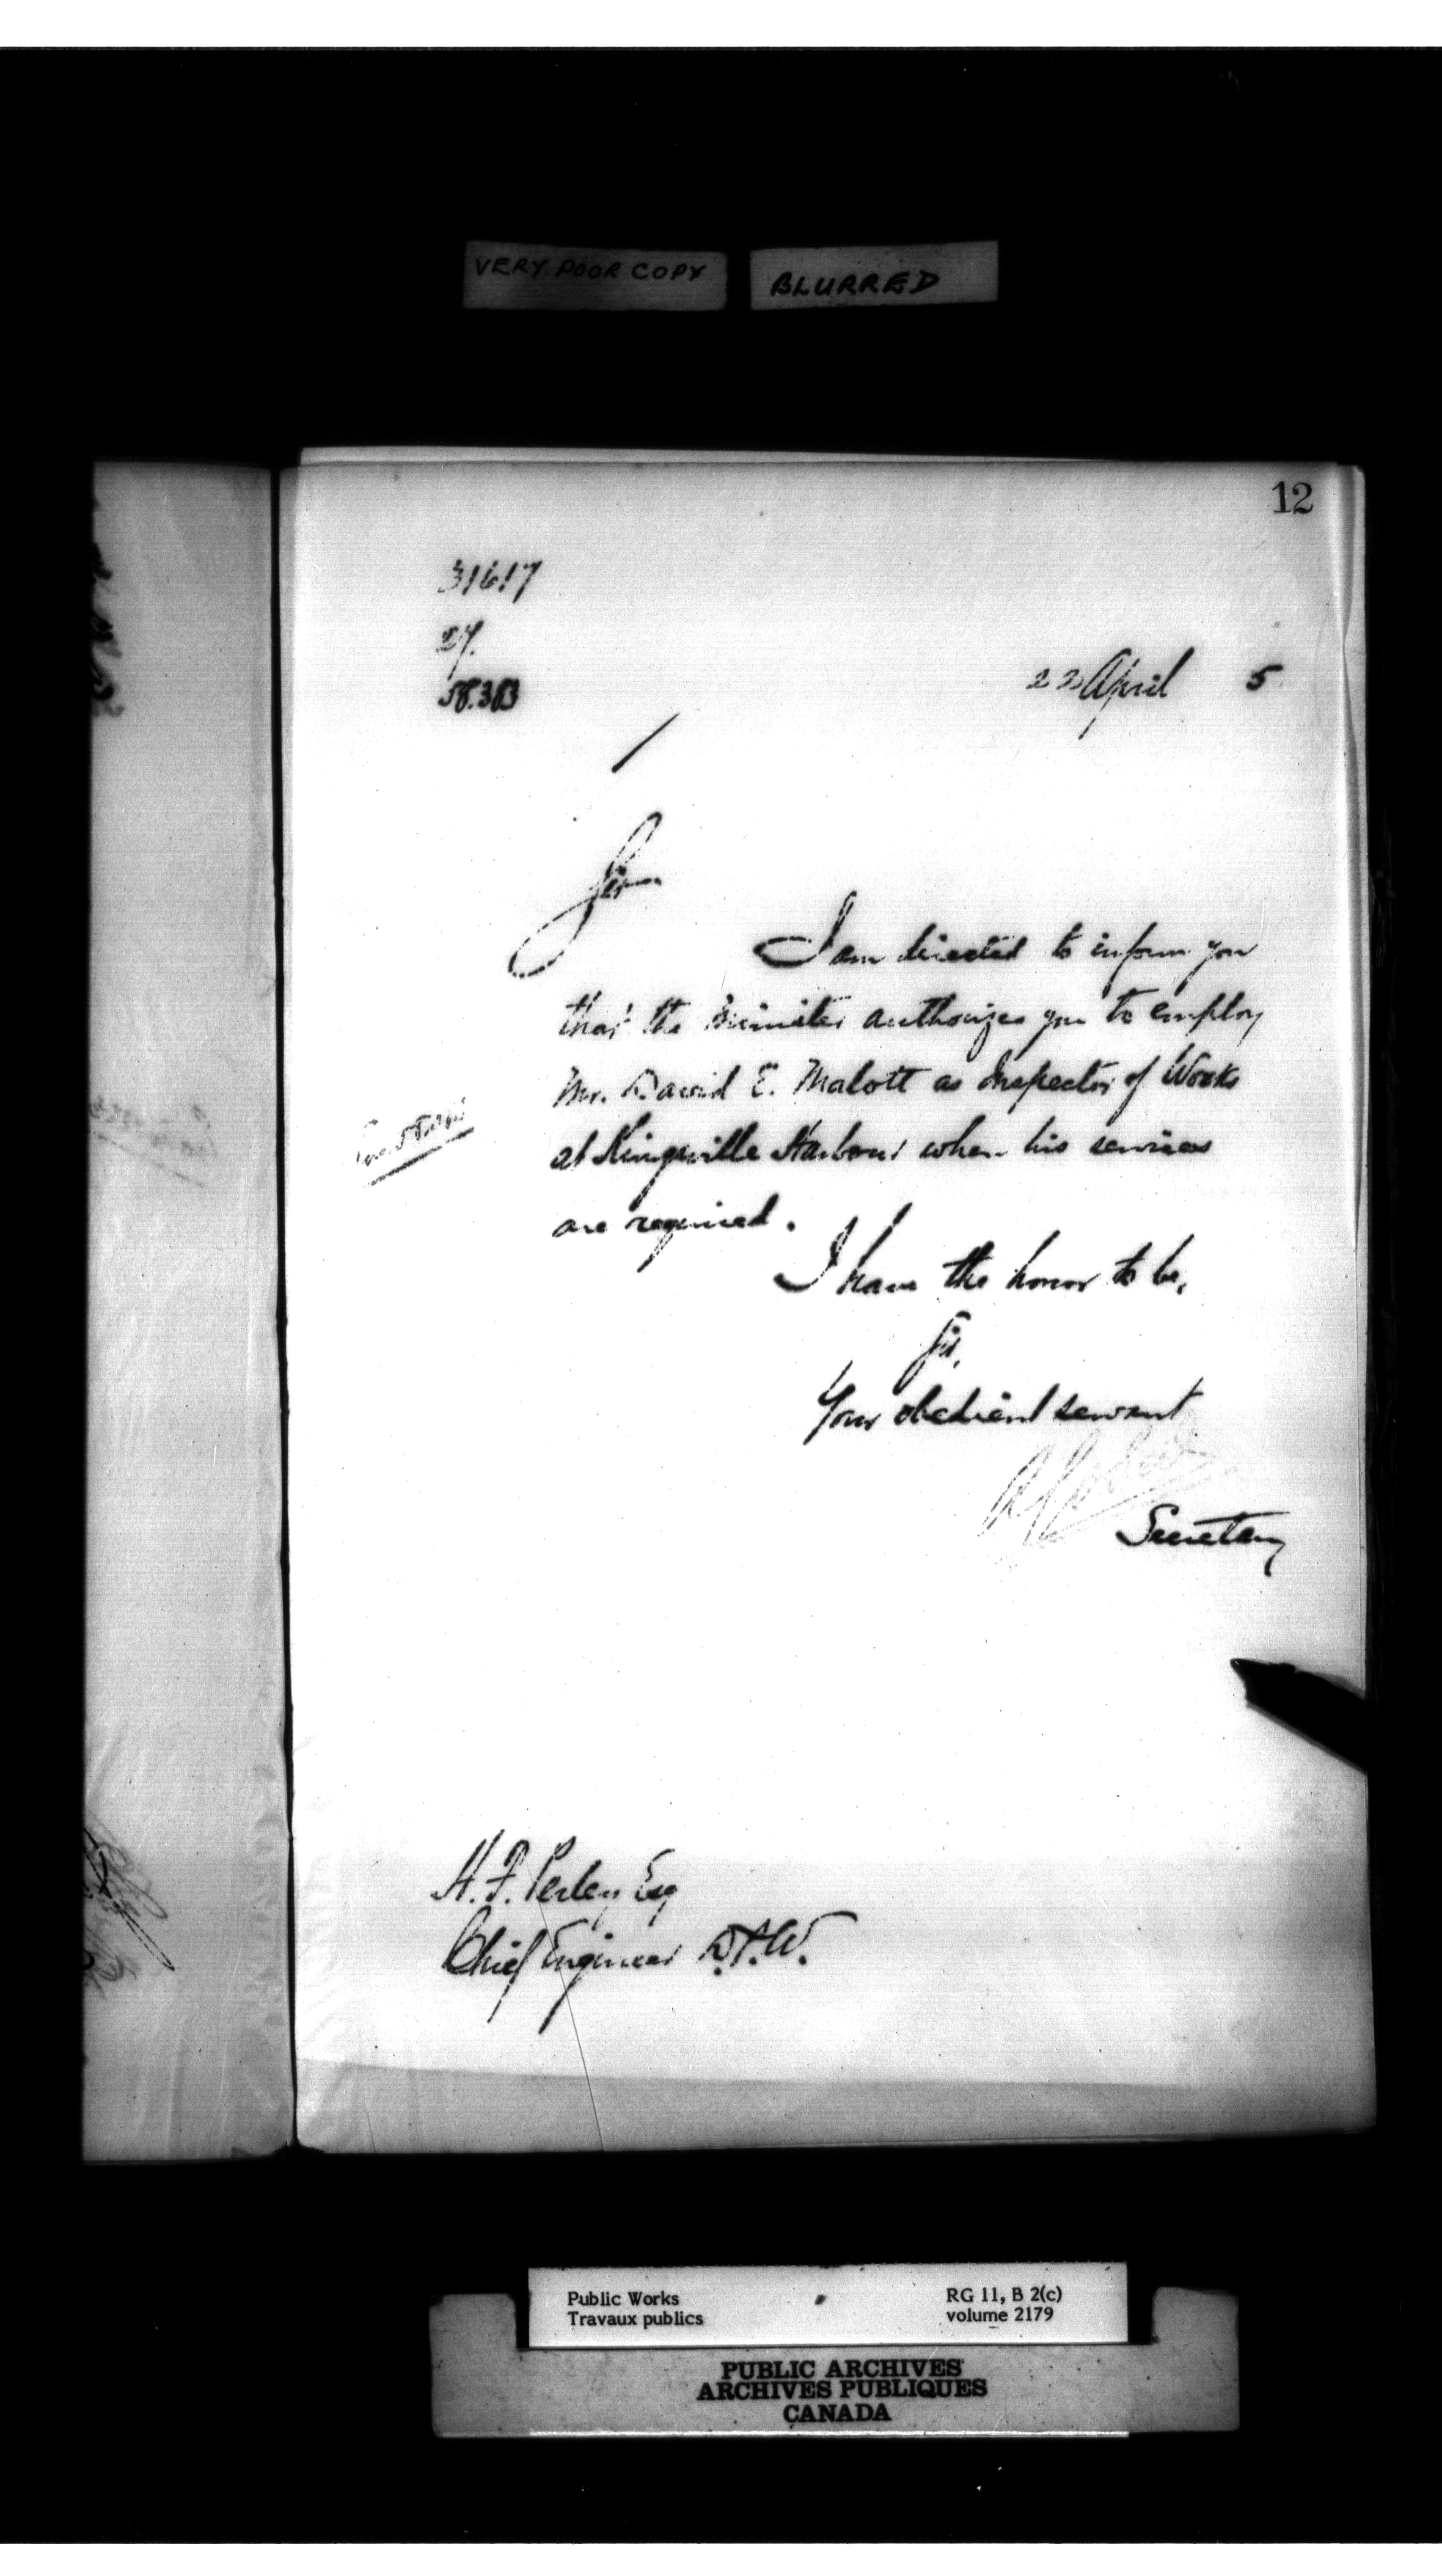 VERY POOR COPY
BLURRED
12
31617
22 April 5
Sir
I am directed to inform you
that the Minister authorizes you to employ
Mr. David E. Malott as Inspector of Works
at Kingsville Harbour when his services
are required.
I have the honor to be,
Sir,
Your obedient servant
Secretary
H. F. Perley Esq
Chief Engineer D.P.W.
Public Works
Travaux publics
RG 11, B 2(c)
volume 2179
PUBLIC ARCHIVES
ARCHIVES PUBLIQUES
CANADA